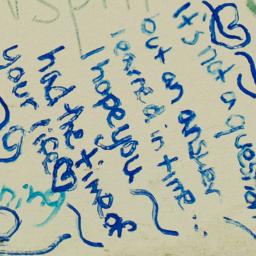 It's not a question
but an answer
learned in time...
I hope you
had the time of
your life